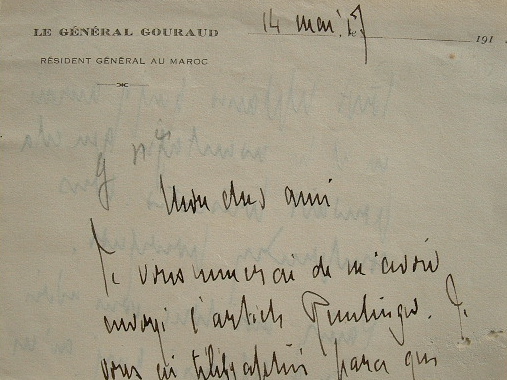 LE GÉNÉRAL GOURAUD
14 mai 17
191
RÉSIDENT GÉNÉRAL AU MAROC
Mon cher ami
Je vous remercie de m'avoir
envoyé l'article. Je
vous ai télégraphié parce que